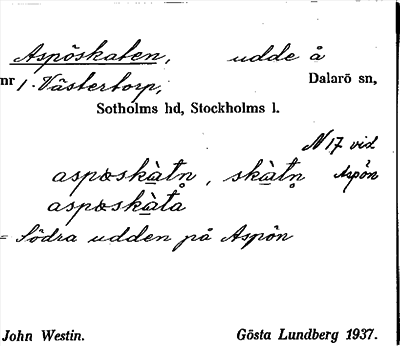 Aspöskaten, udde å
nr 1 Västertorp, Dalarö sn,
Sotholms hd, Stockholms l.
N 17 vid
aspøskàtn̥, skàtn̥ Aspön
aspøskàtå
= Södra udden på Aspön
John Westin. Gösta Lundberg 1937.